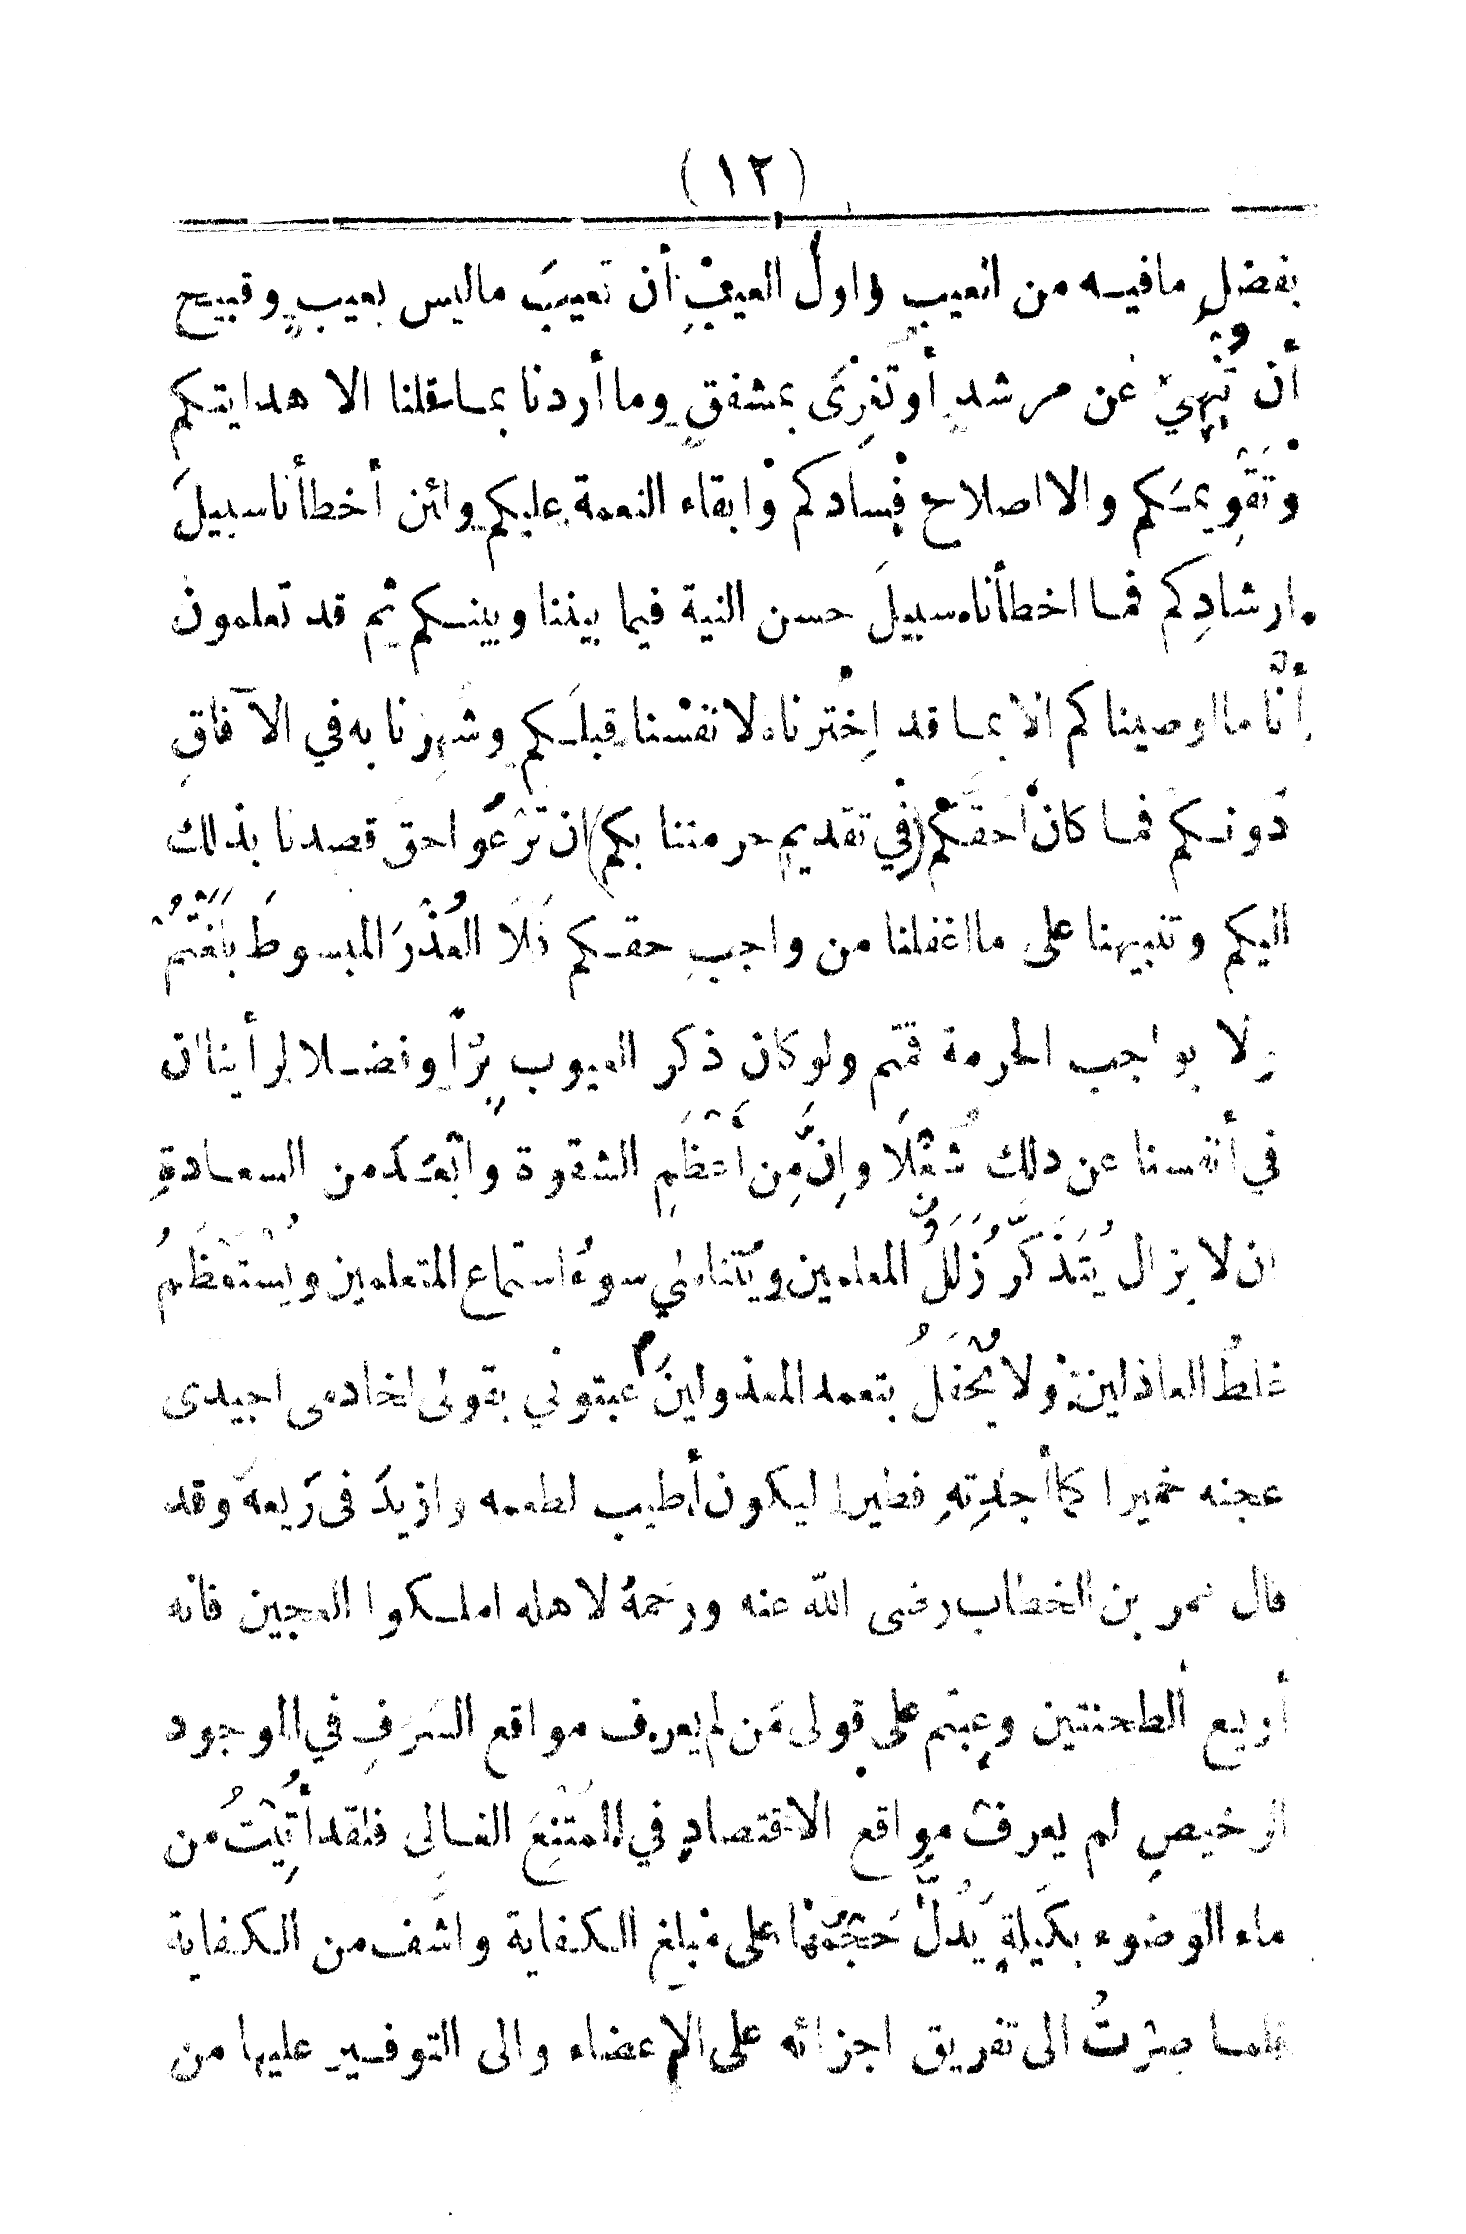 (١٢)
بفضل مافيه من العيب واول العيب أن تعيب ماليس بعيب وقبيح
أن تنهي عن مرشد أو تغرى بمشفق وما أردنا بما قلنا الا هدايتكم
وتقويمكم والا اصلاح فسادكم وابقاء النعمة عليكم ولئن أخطأنا سبيل
ارشادكم فما اخطأنا سبيل حسن النية فيما بيننا وبينكم ثم قد تعلمون
أنا ما اوصيناكم الا بما قد اخترناه لانفسنا قبلكم وشهرنا به في الآفاق
دونكم فما كان أحقكم (في تقديم حرمتنا بكم) ان ترعوا حق قصدنا بذلك
اليكم وتنبيهنا على ما اغفلنا من واجب حقكم فلا العذر المبسوط بلغتم
ولا بواجب الحرمة قمتم ولو كان ذكر العيوب برا وفضلا لرأينا ان
في أنفسنا عن ذلك شغلا وإن من أعظم الشقوة وأبعد من السعادة
ان لا يزال يتذكر زلل المعلمين ويتناسى سوء استماع المتعلمين ويستعظم
غلط العاذلين ولا يحفل بتعمد المعذولين عبتموني بقولى لخادمى اجيدى
عجنه خميرا كما أجدته فطيرا ليكون أطيب لطعمه وازيد فى ريعه وقد
قال عمر بن الخطاب رضى الله عنه ورحمه لاهله املكوا العجين فانه
أريع الطحنتين وعبتم على قولى من لم يعرف مواقع السرف في الموجود
الرخيص لم يعرف مواقع الاقتصاد في الممتنع الغالى فلقد أتيت من
ماء الوضوء بكيلة يدل حجمها على مبلغ الكفاية واشف من الكفاية
فلما صرت الى تفريق اجزائه على الاعضاء والى التوفير عليها من